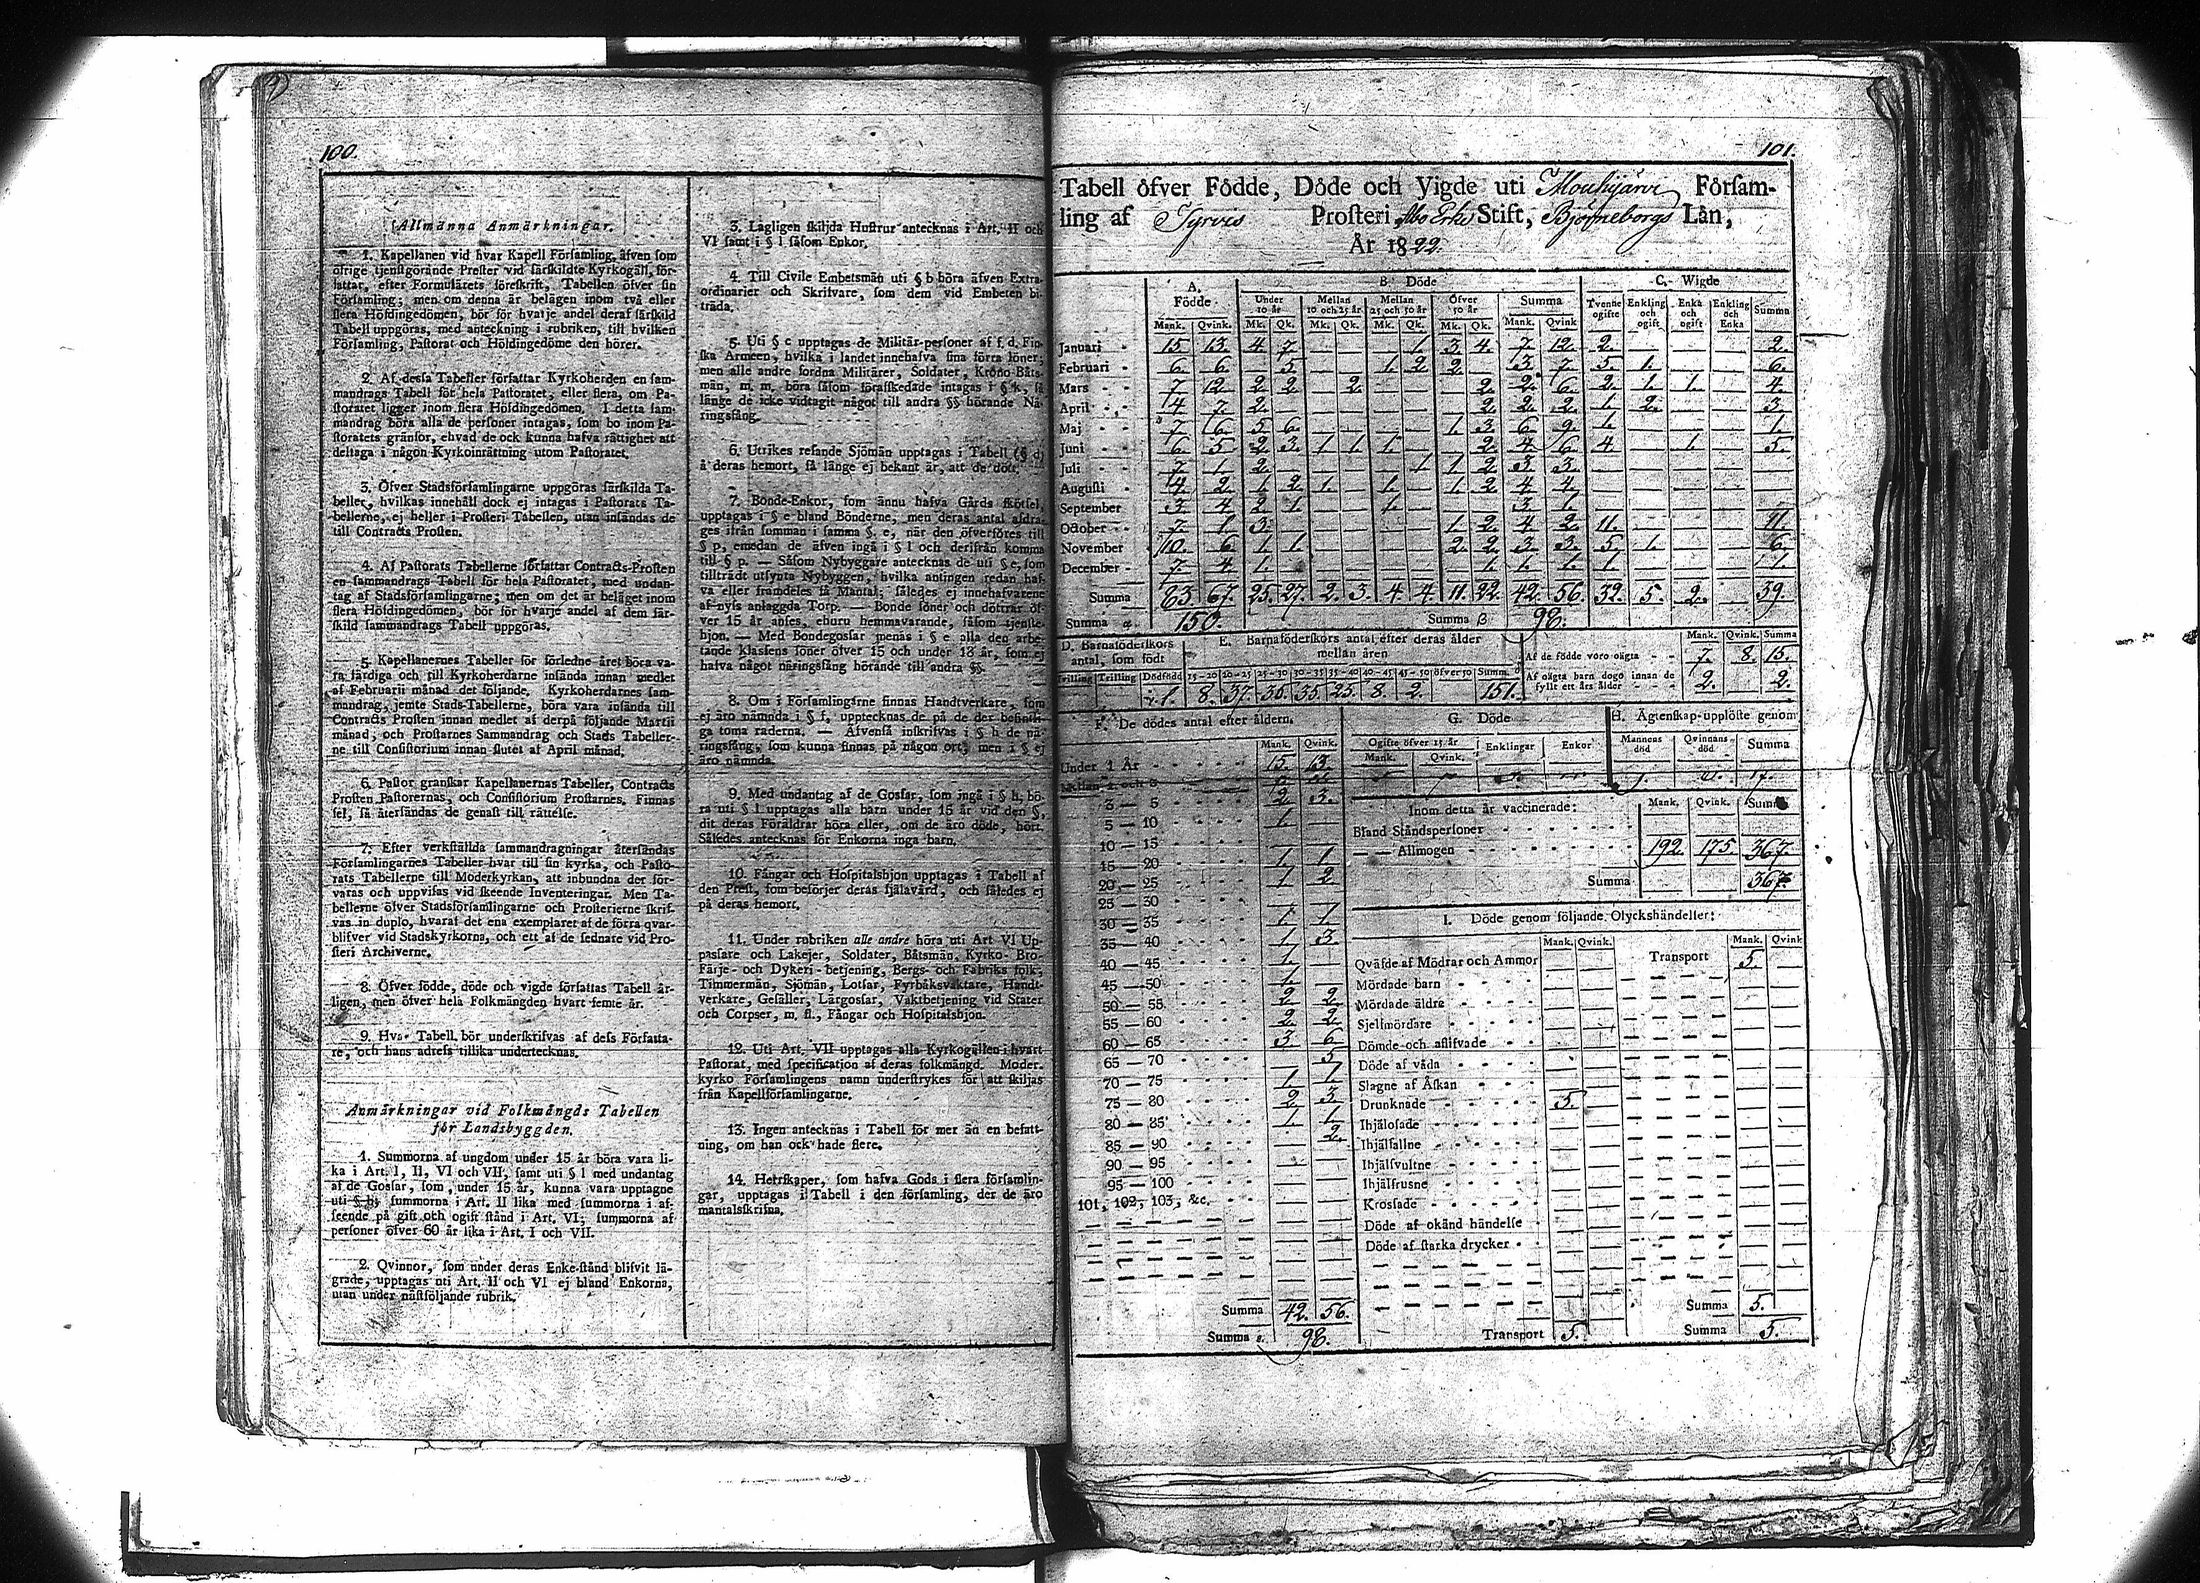 100.
Allmänna Anmärkningar.
1. Kapellanen vid hvar Kapell Församling, åfven som
öfrige tjenstgörande Prester vid särskildte Kyrkogäll, för-
fattar, efter Formulärets föreskrift, Tabellen öfver sin
Församling; men om denna är belägen inom två eller
flera Höfdingedömen, bör för hvarje andel deraf särskild
Tabell uppgöras, med anteckning i rubriken, till hvilken
Församling, Pastorat och Höfdingedöme den hörer.
2. Af dessa Tabeller författar Kyrkoherden en sam-
mandrags Tabell för hela Pastoratet, eller flera, om Pa-
storatet ligger inom flera Höfdingedömen. I detta sam-
mandrag böra alla de personer intagas, som bo inom Pa-
storatets gränsor, ehvad de ock kunna hafva rättighet att
deltaga i någon Kyrkoinrättning utom Pastoratet.
3. Öfver Stadsförsamlingarne uppgöras särskilda Ta-
beller, hvilkas innehåll dock ej intages i Pastorats Ta-
bellerne, ej heller i Prosteri Tabellen, utan insändas de
till Contracts Prosten.
4. Af Pastorats Tabellerne författar Contracts-Prosten
en sammandrags Tabell för hela Pastoratet, med undan-
tag af Stadsförsamlingarne; men om det är beläget inom
flera Höfdingedömen, bör för hvarje andel af dem sär-
skild sammandrags Tabell uppgöras.
5. Kapellanernes Tabeller för förledne året böra va-
ra färdiga och till Kyrkoherdarne insända innan medlet
af Februarii månad det följande. Kyrkoherdarnes sam-
mandrag, jemte Stads-Tabellerne, böra vara insända till
Contracts Prosten innan medlet af derpå följande Martii
månad, och Prostarnes Sammandrag och Stads Tabeller-
ne till Consistorium innan slutet af April månad.
6. Pastor granskar Kapellanernas Tabeller, Contracts
Prosten Pastorernas, och Consistorium Prostarnes. Finnas
fel, så återsändas de genast till rättelse.
7. Efter verkställda sammandragningar återsändas
Församlingarnes Tabeller hvar till sin kyrka, och Pasto-
rats Tabellerne till Moderkyrkan, att inbundna der för-
varas och uppvisas vid skeende Inventeringar. Men Ta-
bellerne öfver Stadsförsamlingarne och Prosterierne skrif-
vas in duplo, hvaraf det ena exemplaret af de förra qvar-
blifver vid Stadskyrkorna, och ett af de sednare vid Pro-
steri Archiverne.
8. Öfver födde, döde och vigde författas Tabell år-
ligen, men öfver hela Folkmängden hvart femte år.
9. Hvar Tabell bör underskrifvas af dess Författa-
re, och hans adress tillika undertecknas.
Anmärkningar vid Folkmängds Tabellen
för Landsbyggden.
1. Summorna af ungdom under 15 år böra vara li-
ka i Art. I, II, VI och VII, samt uti § l med undantag
af de Gossar, som, under 15 år, kunna vara upptagne
uti § h; summorna i Art. II lika med summorna i af-
seende på gift och ogift stånd i Art. VI; summorna af
personer öfver 60 år lika i Art. I och VII.
2. Qvinnor, som under deras Enke-stånd blifvit lä-
grade, upptagas uti Art. II och VI ej bland Enkorna,
utan under nästföljande rubrik.
3. Lagligen skiljda Hustrur antecknas i Art. II och
VI samt i § l såsom Enkor.
4. Till Civile Embetsmän uti § b böra äfven Extra-
ordinarier och Skrifvare, som dem vid Embeten bi-
träda.
5. Uti § c upptagas de Militär-personer af f. d. Fin-
ska Armeen, hvilka i landet innehafva sina förra löner;
men alle andre fordna Militärer, Soldater, Krono Båts-
män, m. m. böra såsom förafskedade intagas i § k, så
länge de icke vidtagit något till andra §§ hörande Nä-
ringsfång.
6. Utrikes resande Sjömän upptagas i Tabell (§ d)
å deras hemort, så länge ej bekant är, att de dött.
7. Bonde-Enkor, som ännu hafva Gårds skötsel,
upptagas i § e bland Bönderne, men deras antal afdra-
ges ifrån summan i samma §. e, när den öfverföres till
§ p, emedan de äfven ingå i § l och derifrån komma
till § p. — Såsom Nybyggare antecknas de uti § e, som
tillträdt utsynta Nybyggen, hvilka antingen redan haf-
va eller framdeles få Mantal; således ej innehafvarene
af nyss anlaggda Torp. — Bonde söner och döttrar öf-
ver 15 år anses, ehuru hemmavarande, såsom tjenste-
hjon. — Med Bondegossar menas i § e alla den arbe-
tande klassens söner öfver 15 och under 18 år, som ej
hafva något näringsfång hörande till andra §§.
8. Om i Församlingarne finnas Handtverkare, som
ej äro nämnda i § f, upptecknas de på de der befintli-
ga toma raderna. — Äfvenså inskrifvas i § h de nä-
ringsfång, som kunna finnas på någon ort; men i § ej
äro nämnda.
9. Med undantag af de Gossar, som ingå i § h, bö-
ra uti § l upptagas alla barn under 15 år vid den §,
dit deras Föräldrar höra eller, om de äro döde, hört.
Således antecknas för Enkorna inga barn.
10. Fångar och Hospitalshjon upptagas i Tabell af
den Prest, som besörjer deras själavård, och således ej
på deras hemort.
11. Under rubriken alle andre höra uti Art VI Up-
passare och Lakejer, Soldater, Båtsmän, Kyrko- Bro-
Färje- och Dykeri-betjening, Bergs- och Fabriks folk,
Timmermän, Sjömän, Lotsar, Fyrbåksvaktare, Handt-
verkare, Gesäller, Lärgossar, Vaktbetjening vid Stater
och Corpser, m. fl., Fångar och Hospitalshjon.
12. Uti Art. VII upptagas alla Kyrkogällen i hvart
Pastorat, med specifikation af deras folkmängd. Moder-
kyrko Församlingens namn understrykes för att skiljas
från Kapellförsamlingarne.
13. Ingen antecknas i Tabell för mer än en befatt-
ning, om han ock hade flere.
14. Herrskaper, som hafva Gods i flera församlin-
gar, upptagas i Tabell i den församling, der de äro
mantalsskrifna.
101.
Tabell öfver Födde, Döde och Vigde uti Mouhijärvi Församling-
ling af Tyrvis Prosteri Åbo Erke Stift, Björneborgs Län,
År 1822.
A. Födde B Döde C. Wigde
Under 10 år Mellan 10 och 25 år Mellan 25 och 50 år Öfver 50 år Summa Tvenne ogifte Enkling och ogift Enka och ogift Enkling och Enka Summa
Mank. Qvink. Mk. Qk. Mk. Qk. Mk. Qk. Mk. Qk. Mank. Qvink
Januari 15 13. 4. 7. 1. 3. 4. 7. 12. 2. 2.
Februari 6. 6. 5. 1. 2. 2. 3. 7. 5. 1. 6.
Mars 7. 12. 2. 2. 2. 2. 2. 6. 2. 1. 1. 4.
April 4. 7. 2. 2. 2. 2. 1. 2. 3.
Maj 7. 6. 5. 6. 1. 3. 6. 9. 1. 1.
Juni 6. 5. 2. 3. 1. 1. 1. 2. 4. 6. 4. 1. 5.
Juli 7. 1. 2. 1. 1. 2. 3. 3.
Augusti 4. 2. 1. 2. 1. 1. 1. 2. 4. 4.
September 3. 4. 2. 1. 1. 3. 1.
October 7. 1. 3. 1. 2. 4. 2. 11. 11.
November 10. 6. 1. 1. 2. 2. 3. 3. 5. 1. 6.
December 7. 4. 1. 1. 1. 1. 1. 1.
Summa 83. 67. 25. 27. 2. 3. 4. 4. 11. 22. 42. 56. 32. 5. 2. 39.
Summa α. 150. Summa β 98.
D. Barnaföderskors antal, som födt
Trilling Tvilling Dödfödd
1.
E. Barnaföderskors antal efter deras ålder mellan åren
15—20 20—25 25—30 30—35 35—40 40—45 45—50 öfver 50 Summ.
8. 37. 36. 35. 25. 8. 2. 151.
Mank. Qvink. Summa
Af de födde voro oägta 7. 8. 15.
Af oägta barn dogo innan de fyllt ett års ålder 2. 2.
F. De dödes antal efter åldern.
Mank. Qvink.
Under 1 År 15. 13.
3—5 2. 3.
5—10 1.
10—15
15—20 1. 1.
20—25 1. 2.
25—30
30—35 1. 1.
35—40 1. 3.
40—45 1.
45—50 1.
50—55 2. 2.
55—60 2. 2.
60—65 3. 6.
65—70 5.
70—75 1. 1.
75—80 2. 3.
80—85 1. 1.
85—90 2.
90—95
95—100
101, 102, 103, &c.
Summa 42. 56.
Summa s. 98.
G. Döde
Ogifte öfver 15 år Enklingar Enkor
Mank. Qvink.
H. Ägtenskap-upplöste genom
Mannens död Qvinnans död Summa
17.
Inom detta år vaccinerade: Mank. Qvink. Summa
Bland Ståndspersoner
— — Allmogen 192. 175 367.
Summa 367.
I. Döde genom följande Olyckshändelser:
Mank. Qvink. Mank. Qvink
Qväfde af Mödrar och Ammor Transport 5.
Mördade barn
Mördade äldre
Sjelfmördare
Dömde och aflifvade
Döde af våda
Slagne af Åskan
Drunknade 5.
Ihjälosade
Ihjälfallne
Ihjälsvultne
Ihjälfrusne
Krossade
Döde af okänd händelse
Döde af starka drycker
Summa 5.
Transport 5. Summa 5.